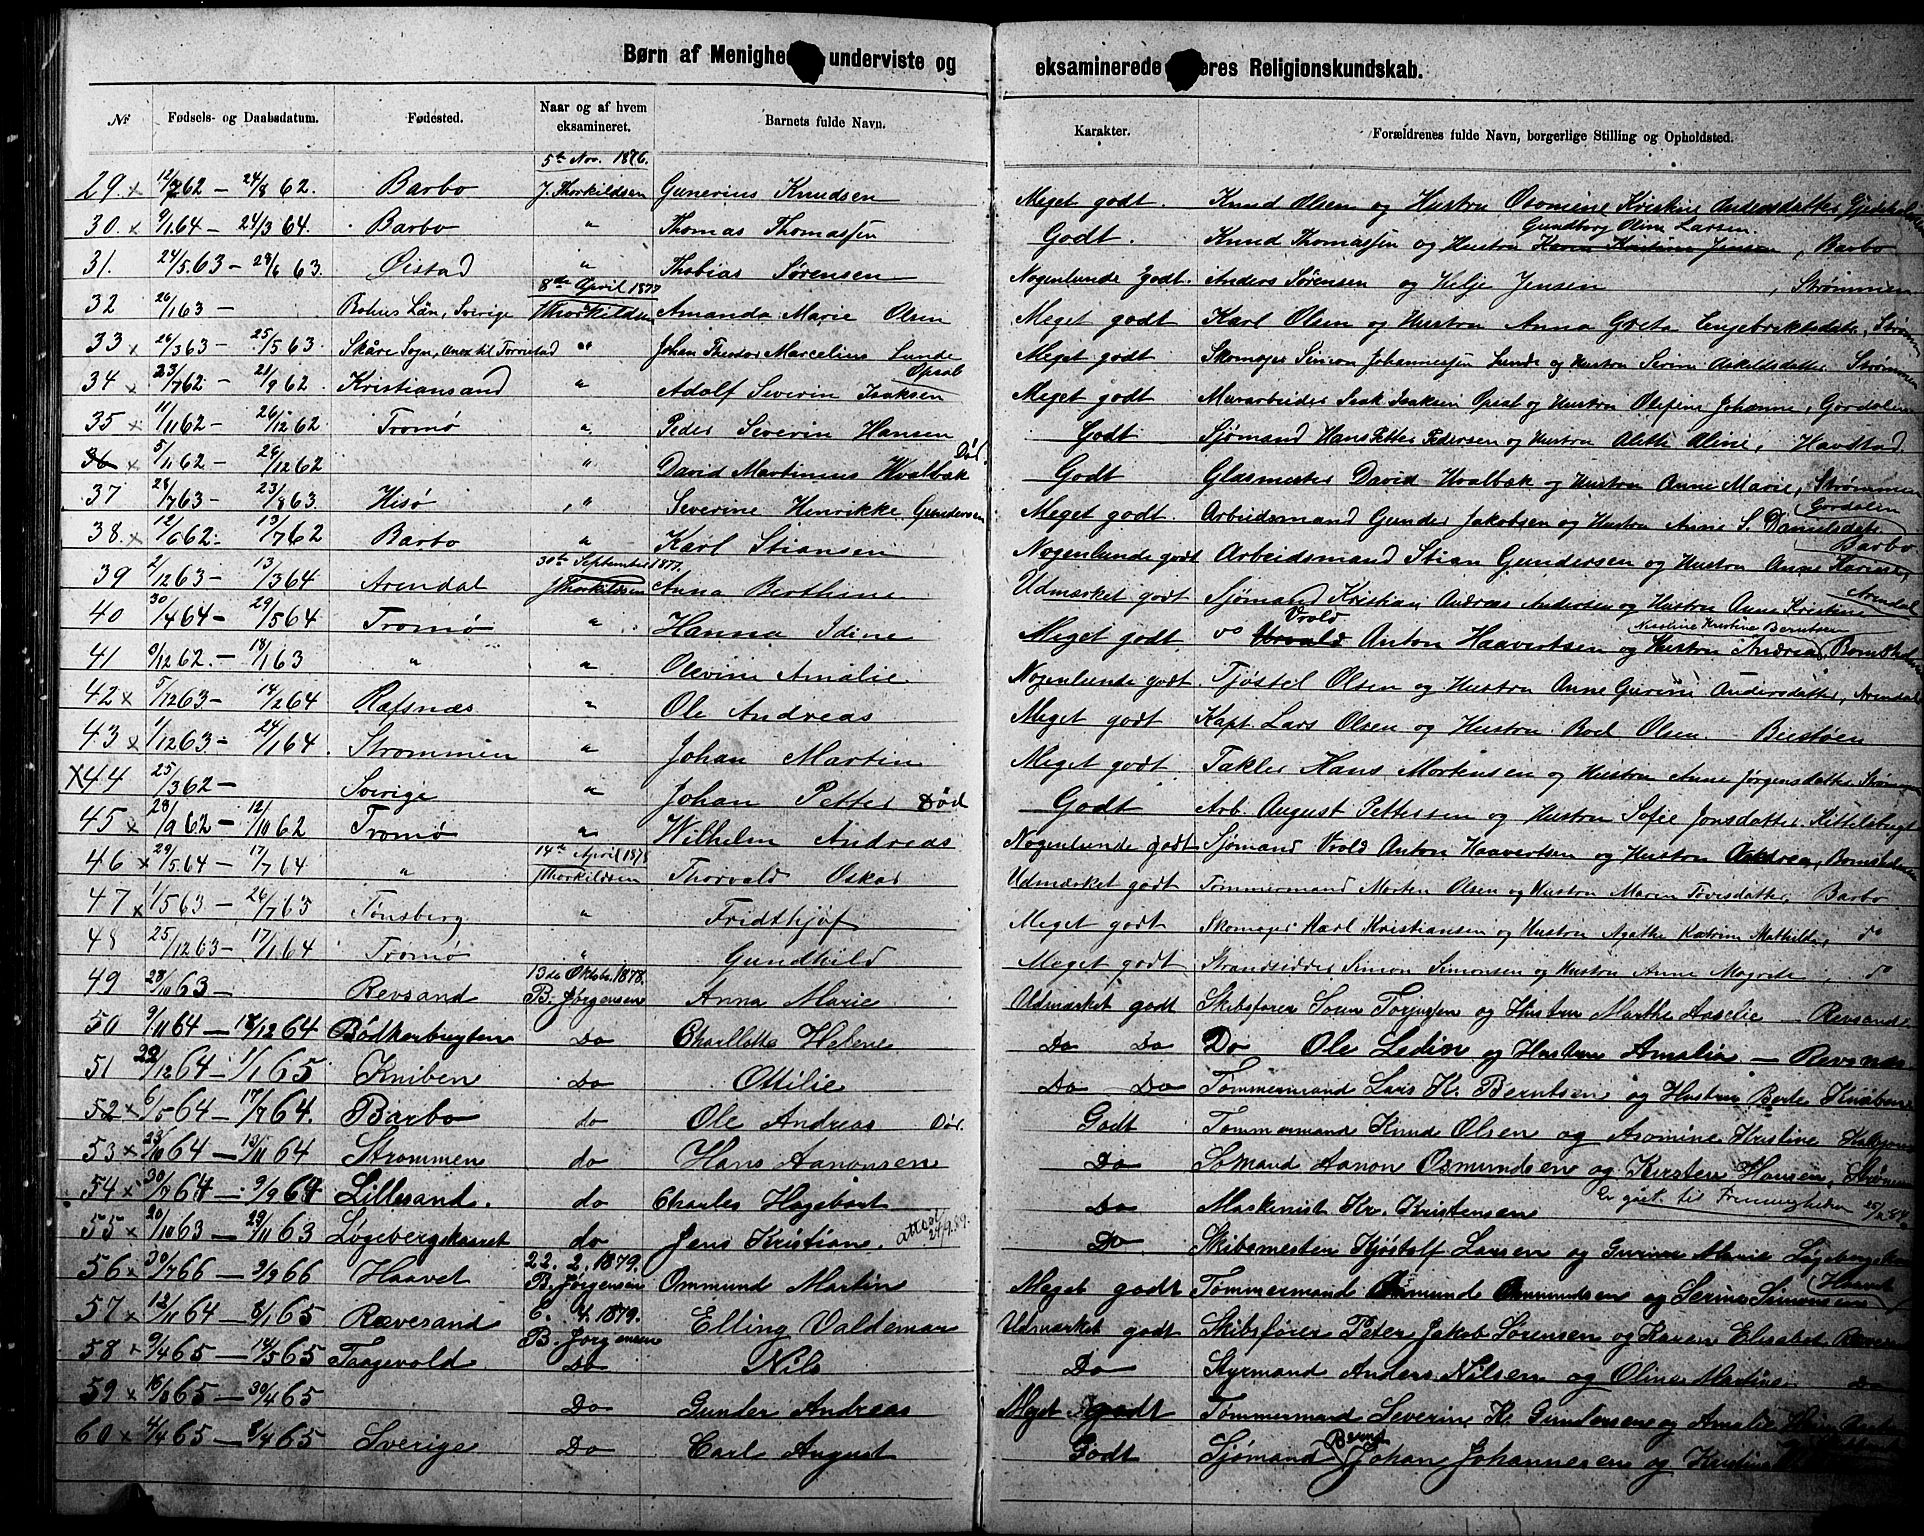 Børn af Menighe underviste og eksaminerede eres Religionskundskab.
№ Fødsels- og Daabsdatum. Fødested. Naar og af hvem eksamineret. Barnets fulde Navn. Karakter. Forældrenes fulde Navn, borgerlige Stilling og Opholdsted.
5te Nov. 1876.
29. x 12/7 62 – 24/8 62. Barbo J. Thorkildsen Gunerius Knudsen Meget godt. Knud Olsen og Hustru Osomine Kristine Andersdatter
Gundborg Oline Larsen
30. x 9/1 64 – 24/3 64. Barbo " Thomas Thomassen Godt. Knud Thomassen og Hustru Karen Kristine Jensen, Barbo
31. 24/5 63 – 28/6 63. Øistad " Thobias Sørensen Nogenlunde godt. Anders Sørensen og Helje Jensen, Strømmen
8de April 1877
32 26/1 63 – Bohus Län, Sverige Thorkildsen Amanda Marie Olsen Meget godt Karl Olsen og Hustru Anna Greta Engebrektsdatter, Strømm
33 x 26/3 63 – 25/5 63. Skåre Sogn, Anex til Torvestad " Johan Theodor Marcelius Lunde Meget godt Skomager Simon Johannessen Lunde og Hustru Serine Askildsdatter Strømmen
Opsal
34 x 23/7 62. – 21/9 62. Kristiansand " Adolf Severin Isaksen Meget godt Murarbeider Isak Isaksen Opsal og Hustru Olefine Johanne, Gordalen
35 x 11/11 62 – 26/12 62. Tromø " Peder Severin Hansen Godt Sjømand Hans Petter Pedersen og Hustru Alette Oline, Havstad
36 x 5/11 62 – 26/12 62 " David Martinius Hvalbæk Død. Godt Glasmester David Hvalbæk og Hustru Anne Marie, Strømmen
37 28/7 63 – 23/8 63. Hisø " Severine Henrikke Gundersen Meget godt. Arbeidsmand Gunder Jakobsen og Hustru Anne S. Danielsdatter Gordalen
38. x 12/6 62 – 13/7 62 Barbo " Karl Stiansen Nogenlunde godt Arbeidsmand Stian Gundersen og Hustru Anne Karine, Barbo
30te September 1877.
39 2/12 63 – 13/3 64 Arendal Thorkildsen Anna Berthine Udmærket godt Sjømand Kristian Andreas Andersen og Hustru Anne Kristine Arendal
Vrold Nicoline Kristine Berntsen
40 30/4 64 – 29/5 64 Tromø " Hanna Idine Meget godt do Vorvald Anton Haavertsen og Hustru Andrea, Bomsholmen
41 9/12 62. – 18/1 63 " " Olevine Amalie Nogenlunde godt. Tjøstel Olsen og Hustru Anne Gurine Andersdatter, Arendal
42 x 5/12 63 – 14/2 64 Ræfsnæs " Ole Andreas Meget godt Kapt. Lars Olsen og Hustru Boel Olsen Biestøen
43 x 1/12 63 – 24/1 64. Strømmen " Johan Martin Meget godt. Takler Hans Mortensen og Hustru Anne Jørgensdatter Strømmen
x 44 25/3 62 – Sverige " Johan Petter Død Godt Arb. August Pettersen og Hustru Sofie Jonsdatter. Kittelsbugt
45 x 28/9 62 – 12/10 62 Tromø " Wilhelm Andreas Nogenlunde godt Sjømand Vrold Anton Haavertsen og Hustru Andrea, Bomsholmen
14te April 1878
46 x 29/5 64 – 17/7 64 " Thorkildsen Thorvald Oskar Udmærket godt Tømmermand Morten Olsen og Hustru Maren Tevisdatter Barbo
47 x 1/5 63 – 26/7 63 Tønsberg " Fridthjof Meget godt Skomager Karl Kristiansen og Hustru Agathe Katrine Mathilde, do
48 25/12 63 – 17/1 64 Tromø " Gundhild Meget godt Strandsidder Simon Simonsen og Hustru Anne Magrete, do
13de Oktober 1878.
49 28/10 63 Revsand B. Jørgensen Anna Marie Udmærket godt Skibsfører Soren Torjusen og Hustru Marthe Aaselie Revsand
50 9/11 64 – 18/12 64 Bödkerbugten Do Charllotte Helene Do Do Do Ole Ledin og Hustru Amalia – Revsand
51 22/12 64 – 1/1 65 Kniben Do Ottilie Do Do Tømmermand Lars Kr. Berntsen og Hustru Berte Kniben
52 x 6/5 64 – 17/7 64. Barbo do Ole Andreas Død. Godt Tømmermand Knud Olsen og Asomine Kristine
53 x 23/10 64 – 13/11 64 Strømmen do Hans Aanonsen Do Sømand Aanon Osmundsen og Kirsten Hansen, Strømm
54 x 30/7 64 – 9/9 64 Lillesand. do Charles Hagebart Do Maskinist Kr. Kristensen Er gået til Frimenigheden 25/2 84.
55 x 20/10 63 – 29/11 63 Løgebergskarret do Jens Kristian. attest 24/9.89. Do Skibsmester Kjöstolf Larsen og Gurine Marie Løgebergsk
22. 2. 1879.
56 x 30/7 66 – 2/9 66 Haavet B. Jørgensen Ommund Martin Meget godt Tømmermand Ommund Ommundsen og Serine Simonsen Haavet
6. 4. 1879.
57 x 12/11 64 – 8/1 65 Rævesand B. Jørgensen Elling Valdemar Udmærket godt Skibsfører Peter Jakob Sørensen og Karen Elisabet Rævesand
58 x 9/4 65 – 14/5 65 Taagevold Do Nils Do Styrmand Anders Nilsen og Oline Martine Do
59 x 16/3 65 – 30/4 65 Do Gunder Andreas Meget godt Tømmermand Severin Kr. Gundersen og Amalie
Bernt
60 x 4/4 65 – 8/4 65 Sverige Do Carl August Godt Sjømand Johan Johannesen og Kristina